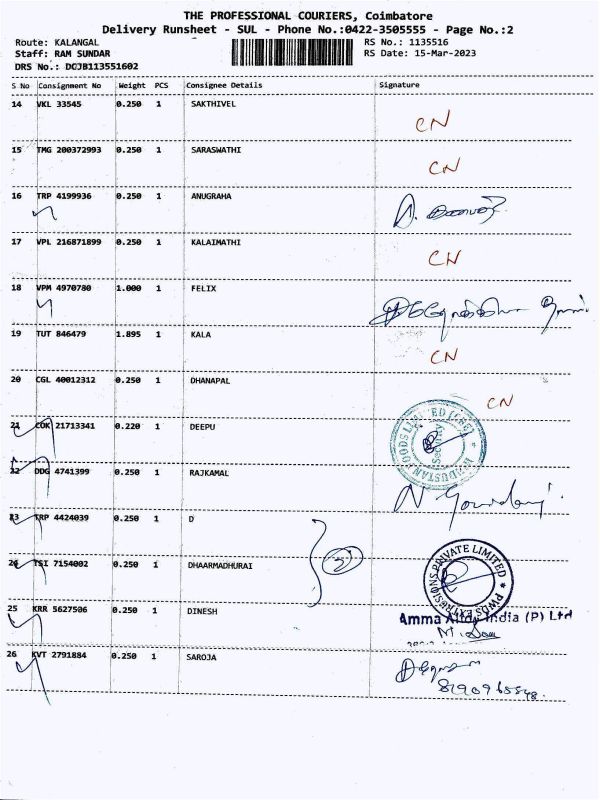 THE PROFESSIONAL COURIERS, Coimbatore
Delivery Runsheet - SUL - Phone No.:0422-3505555 - Page No.:2
Route: KALANGAL RS No.: 1135516
Staff: RAM SUNDAR RS Date: 15-Mar-2023
DRS No.: DCJB113551602
S No Consignment No Weight PCS Consignee Details Signature
14 VKL 33545 0.250 1 SAKTHIVEL
CN
15 TMG 200372993 0.250 1 SARASWATHI
CN
16 TRP 4199936 0.250 1 ANUGRAHA
17 VPL 216871899 0.250 1 KALAIMATHI
CN
18 VPM 4970780 1.000 1 FELIX
19 TUT 846479 1.895 1 KALA
CN
20 CGL 40012312 0.250 1 DHANAPAL
CN
21 COK 21713341 0.220 1 DEEPU
HINDUSTAN FOODS LIMITED (CBE)
Security
22 DDG 4741399 0.250 1 RAJKAMAL
23 TRP 4424039 0.250 1 D
24 TSI 7154002 0.250 1 DHAARMADHURAI
PRIVATE LIMITED
25 KRR 5627506 0.250 1 DINESH
Amma India (P) Ltd
26 KVT 2791884 0.250 1 SAROJA